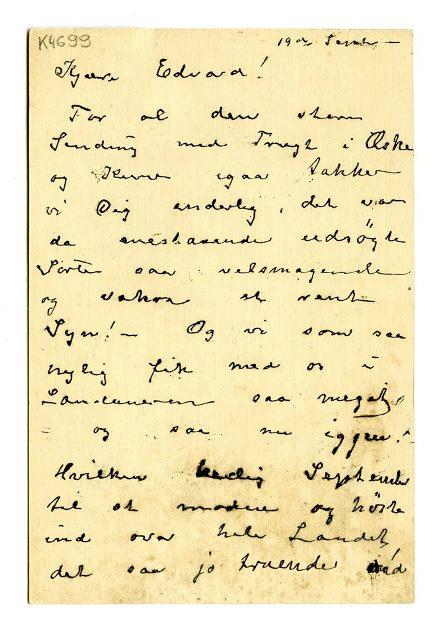 K4699
19de Septbr —
Kjære Edvard!
For al den store
Sending med Frugt i Æske
og Kurve igaar takker
vi Dig inderlig, det var
da enestaaende udsögte
Sorter saa velsmagende
og vakre et rent
Syn! — Og vi som saa
nylig fik med os i
saa meget,
— og saa nu iggen! —
Hvilken deilig September
til at modne og höste
ind over hele Landet,
det saa jo truende ud